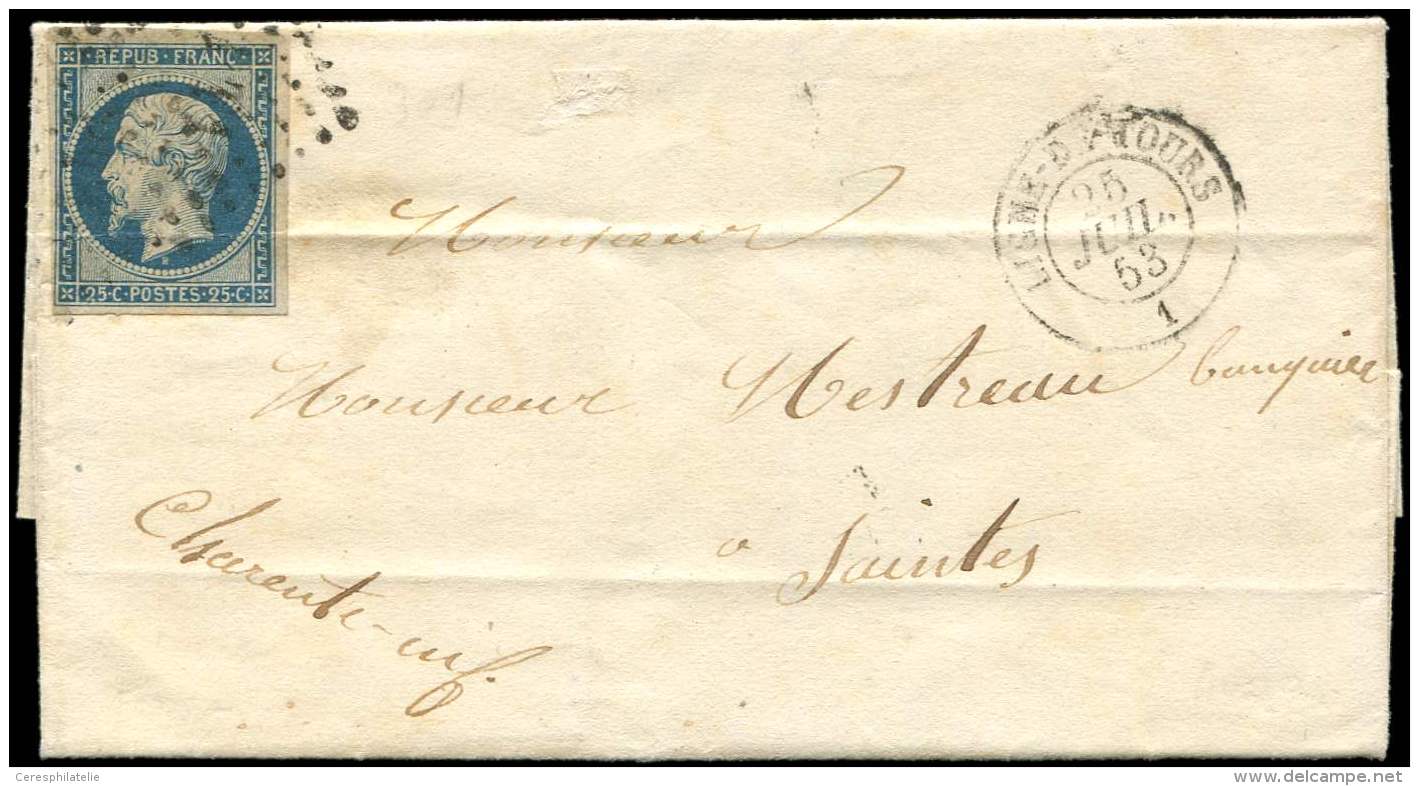 REPUB · FRANC ·
· 25 · C · POSTES · 25 · C ·
LIGNE-DE-TOURS
25
JUIL.
53
1
Monsieur
Monsieur Mestreau banquier
a Saintes
Charente-inf.
Ceresphilatelie
www.delcampe.net